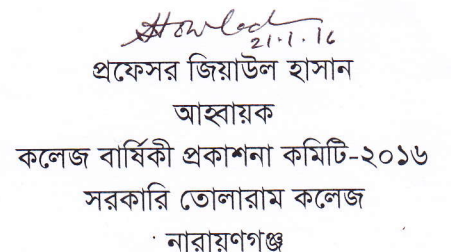 21.1.16
প্রফেসর জিয়াউল হাসান
আহবায়ক
কলেজ বার্ষিকী প্রকাশনা কমিটি-২০১৬
সরকারি তোলারাম কলেজ
নারায়ণগঞ্জ